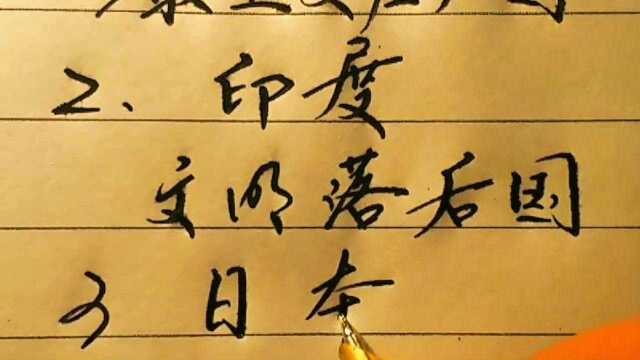 2、印度
文明落后国
3 日本